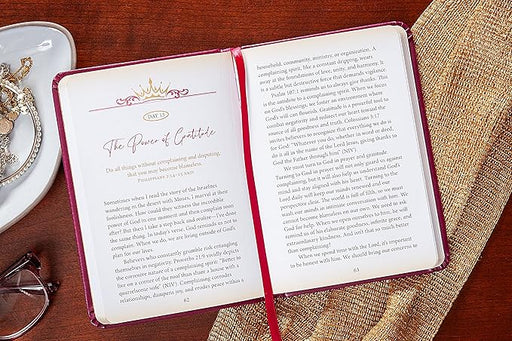 DAY 15
The Power of Gratitude
Do all things without complaining and disputing,
that you may become blameless.
PHILIPPIANS 2:14–15 NKJV
Sometimes when I read the story of the Israelites
wandering in the desert with Moses, I marvel at their
faithlessness. How could they witness the incredible
power of God in one moment and then complain soon
after? But then I take a step back and realize—I've done
the same thing. In today's verse, God reminds us not to
complain. When we do, we are living outside of God's
plan for our lives.
Believers who constantly grumble risk entangling
themselves in negativity. Proverbs 21:9 vividly depicts
the corrosive nature of a complaining spirit: "Better to
live on a corner of the roof than share a house with a
quarrelsome wife" (NIV). Complaining corrodes
relationships, dampens joy, and erodes peace within a
62
household, community, ministry, or organization. A
complaining spirit, like a constant dripping, wears
away at the foundations of love, unity, and harmony. It
is a subtle but destructive force that demands vigilance
Psalm 107:1 reminds us to always give thanks. This
is the antidote to a complaining spirit. When we focus
on God's blessings, we foster an environment where
God's will can flourish. Gratitude is a powerful tool to
combat negativity and redirect our heart toward the
source of all goodness and truth. Colossians 3:17
invites believers to recognize that everything we do is
for God: "Whatever you do, whether in word or deed,
do it all in the name of the Lord Jesus, giving thanks to
God the Father through him" (NIV).
We must turn to God in prayer and gratitude.
Turning to God in prayer will not only guard us against
complaining, but it will also help us understand God's
mind and stay aligned with his heart. Turning to the
Lord daily will keep our minds renewed and our
perspective clear. The world is full of darkness, so we must
wash our minds in intimate conversation with him. We
cannot become blameless on our own. We need to ask
God for help. When we open ourselves to him, he will
remind us of his elaborate goodness, infinite grace, and
extraordinary kindness. And isn't that so much better
than complaining?
When we spend time with the Lord, it's important
to be honest with him. We should bring our concerns to
63